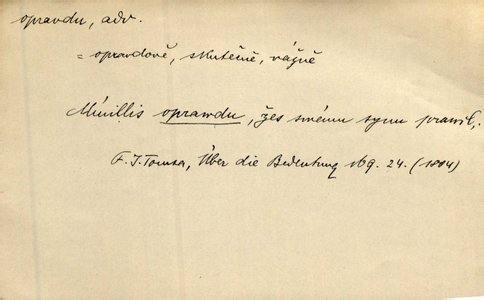 opravdu, adv.
= opravdově, skutečně, vážně
Mínillis opravdu, žes mému synu prawil,
F. J. Tomsa, Über die Bedeutung 169. 24. (1804)